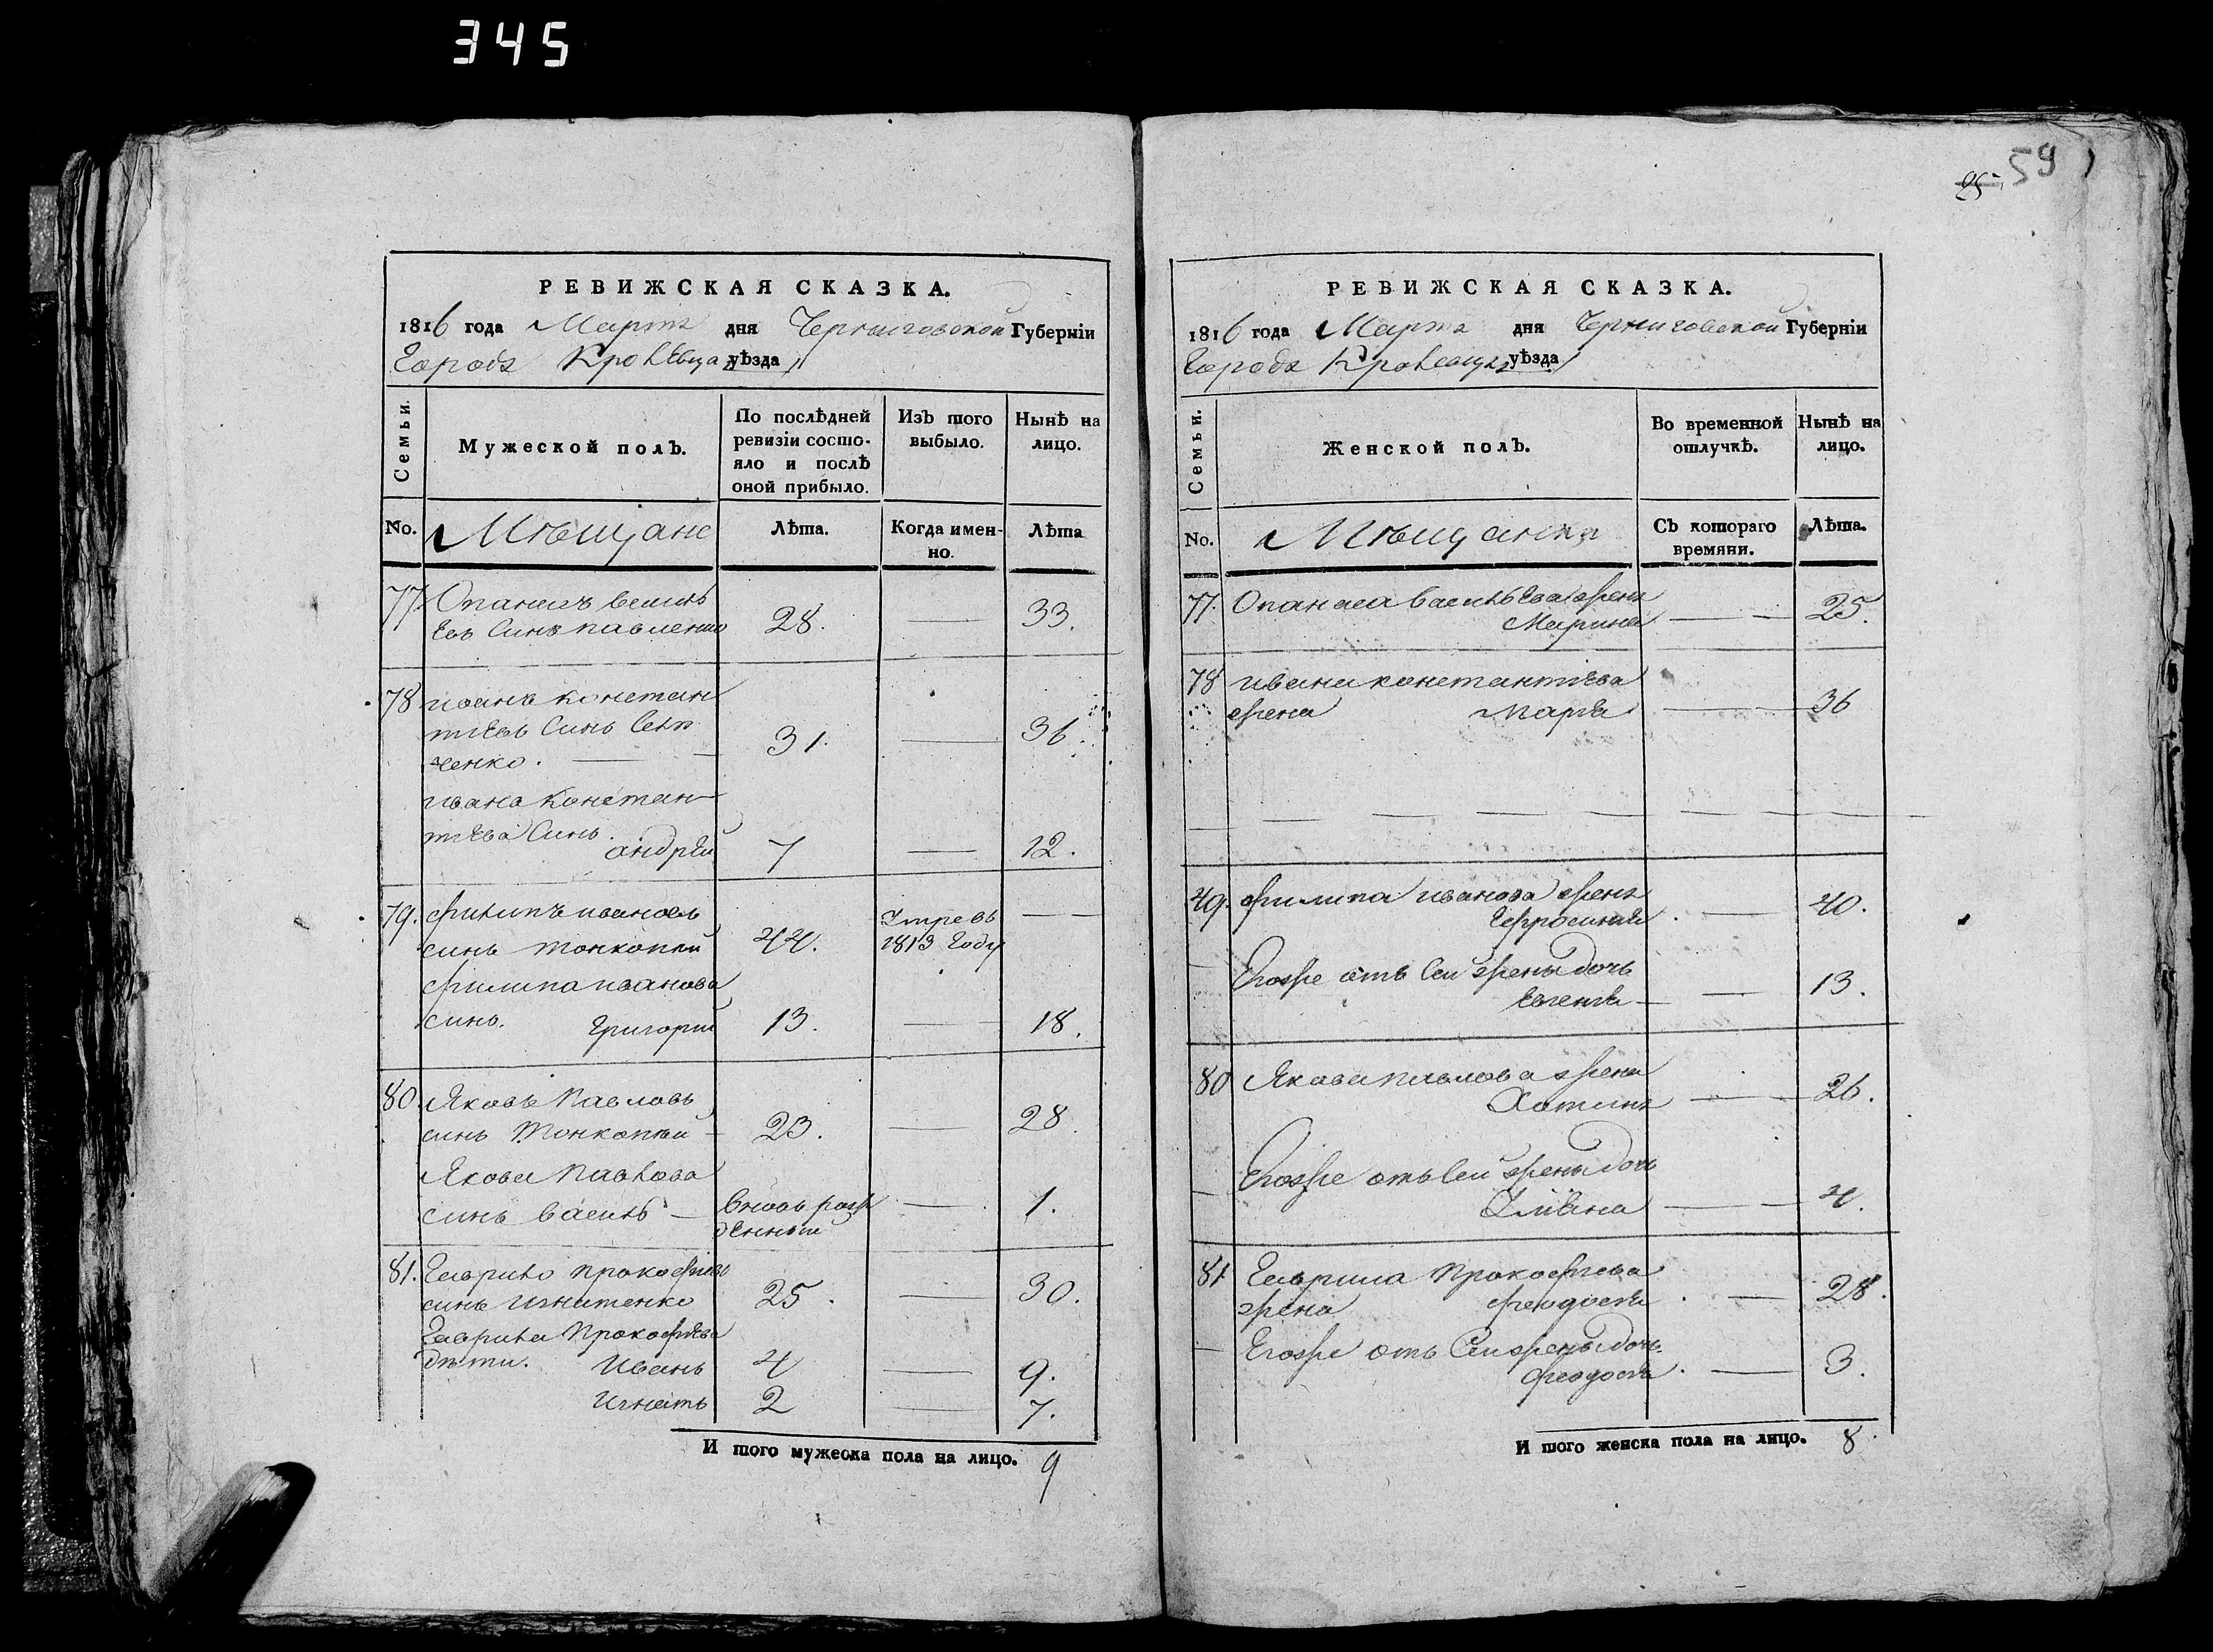 345
59
25
РЕВИЖСКАЯ СКАЗКА.
1816 года Марта дня Черниговской Губерніи
Города Кролѣвца уѣзда
Семьи.
Мужеской полъ.
По послѣдней ревизіи состо-
яло и послѣ оной прибыло.
Изъ того выбыло.
Нынѣ на лицо.
No.
Мѣщане
Лѣта.
Когда имен-
но.
Лѣта
77 Опанасъ василь
евъ Синъ павленко 28. — 33.
78 иванъ констан
тіевъ Синъ
ченко. — 31. — 36.
ивана констан
тіева Синъ.
андрей 7 — 12.
79. филипъ ивановъ
синъ тонкопій 44. Умре въ 1813 Году —
филипа иванова
синъ. Григорий 13. — 18.
80. Яковъ Павловъ
синъ Тонкопий 23. — 28.
Якова Павлова
синъ василь — вновь рож
денный — 1.
81. Гаврило прокофіевъ
синъ игнатенко 25. — 30.
Гаврила Прокофіева
дѣти. Иванъ 4 — 9.
Игнатъ 2 — 7.
И того мужеска пола на лицо. 9
РЕВИЖСКАЯ СКАЗКА.
1816 года Марта дня Черниговской Губерніи
Города Кролевца уѣзда
Семьи.
Женской полъ.
Во временной отлучкѣ.
Нынѣ на лицо.
No.
Мѣщанки
Съ котораго времяни.
Лѣта.
77. Опанаса васильева жена
Марина — 25.
78 ивана константіева
жена Марія — 36
79. филипа иванова жена
Ефросинія — 40.
Егожъ отъ сей жены дочь
Евгенія — 13.
80 Якова павлова жена
— 26.
Егожъ отъ сей жены дочь
Уліяна — 4.
81 Гаврила Прокофіева
жена феодосія — 28.
Егожъ отъ Сей жены дочь
феодосія — 3.
И того женска пола на лицо. 8